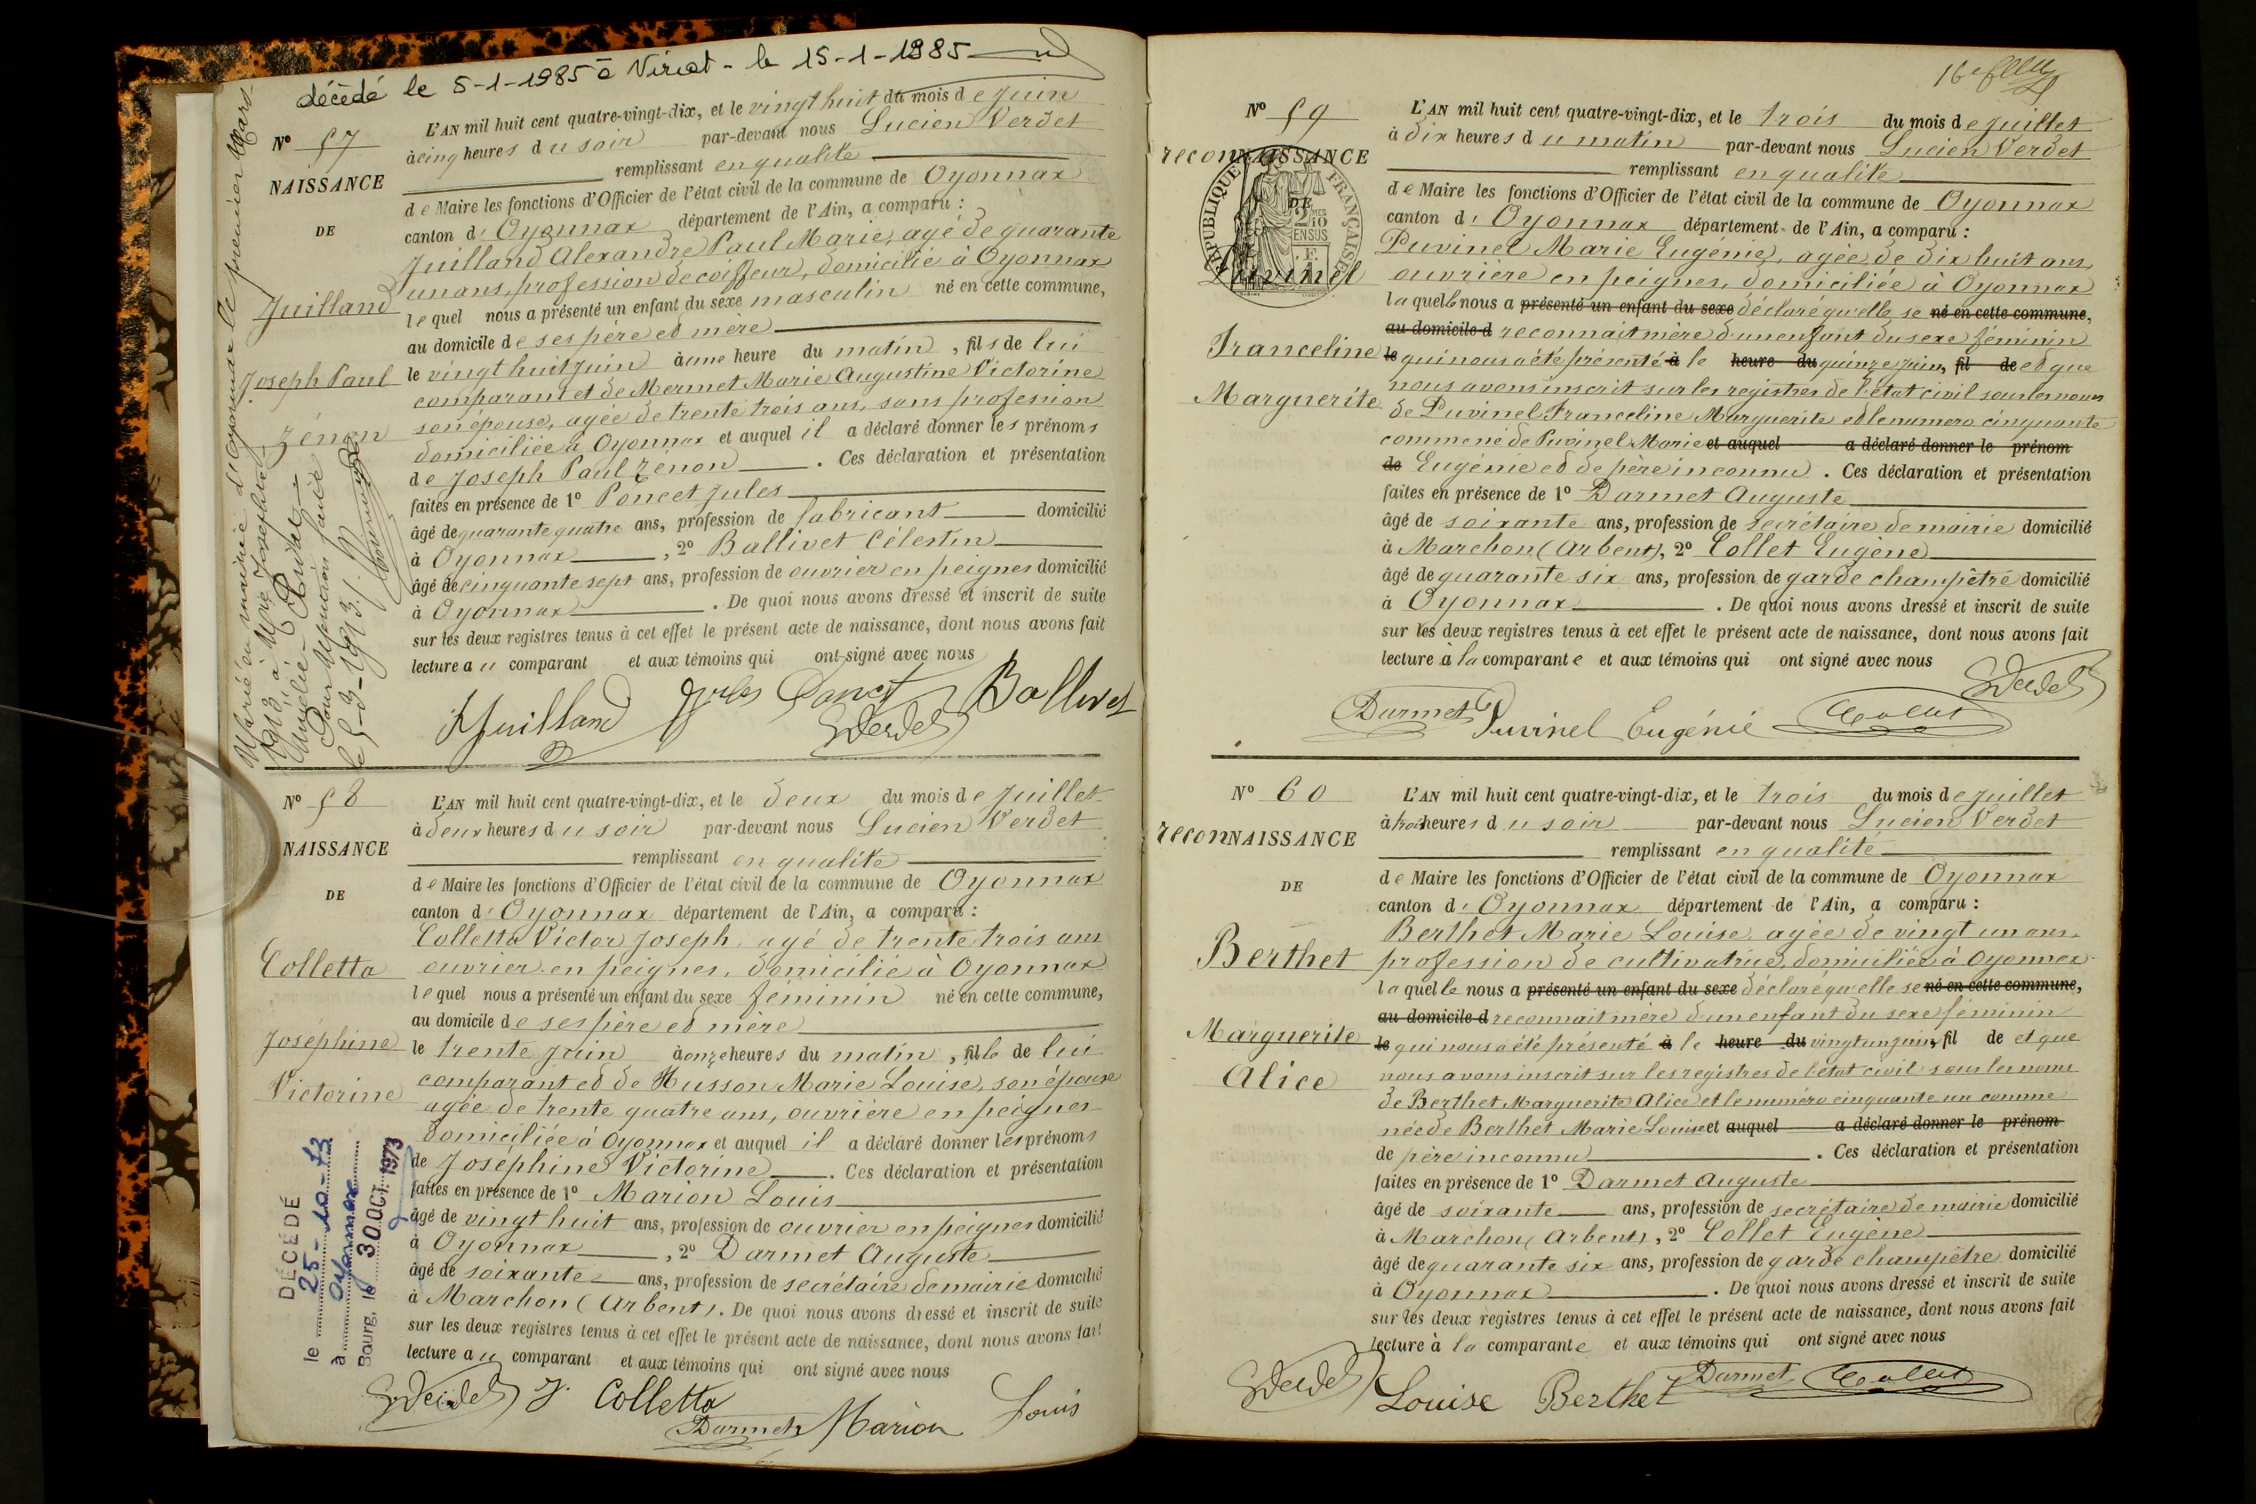 décèdé le 5-1-1985 à Viriat - le 15-1-1985
Marié en mairie d'Oyonnax le premier Mars
1913 à Marie Joséphine
Amélie
Pour Mention faite
le 5-3-1913.
Nº 57
NAISSANCE
DE
Juilland
Joseph Paul
Zénon
L'AN mil huit cent quatre-vingt-dix, et le vingt huit du mois de Juin
à cinq heures du soir par-devant nous Lucien Verdet
remplissant en qualité
de Maire les fonctions d'Officier de l'état civil de la commune de Oyonnax
canton d' Oyonnax département de l'Ain, a comparu :
Juilland Alexandre Paul Marie, agé de quarante
un ans, profession de coiffeur, domicilié à Oyonnax
lequel nous a présenté un enfant du sexe masculin né en cette commune,
au domicile de ses père et mère
le vingt huit juin à une heure du matin, fils de lui
comparant et de Mermet Marie Augustine Victorine
son épouse, agée de trente trois ans, sans profession
domiciliée à Oyonnax et auquel il a déclaré donner les prénoms
de Joseph Paul Zénon. Ces déclaration et présentation
faites en présence de 1º Poncet Jules
âgé de quarante quatre ans, profession de fabricant domicilié
à Oyonnax, 2º Ballivet Célestin
âgé de cinquante sept ans, profession de ouvrier en peignes domicilié
à Oyonnax. De quoi nous avons dressé et inscrit de suite
sur les deux registres tenus à cet effet le présent acte de naissance, dont nous avons fait
lecture au comparant et aux témoins qui ont signé avec nous
Juilland Jules Poncet Ballivet
Verdet
Nº 58
NAISSANCE
DE
Colletta
Joséphine
Victorine
DÉCÉDÉ
le 25-10-73
à Oyonnax
Bourg, le 30 OCT. 1973
L'AN mil huit cent quatre-vingt-dix, et le deux du mois de Juillet
à deux heures du soir par-devant nous Lucien Verdet
remplissant en qualité
de Maire les fonctions d'Officier de l'état civil de la commune de Oyonnax
canton d' Oyonnax département de l'Ain, a comparu :
Colletta Victor Joseph agé de trente trois ans
ouvrier en peignes, domicilié à Oyonnax
lequel nous a présenté un enfant du sexe féminin né en cette commune,
au domicile de ses père et mère
le trente Juin à onze heures du matin, fille de lui
comparant et de Husson Marie Louise, son épouse
agée de trente quatre ans, ouvrière en peignes
domiciliée à Oyonnax et auquel il a déclaré donner les prénoms
de Joséphine Victorine. Ces déclaration et présentation
faites en présence de 1º Marion Louis
âgé de vingt huit ans, profession de ouvrier en peignes domicilié
à Oyonnax, 2º Darmet Auguste
âgé de soixante ans, profession de secrétaire de mairie domicilié
à Marchon (Arbent). De quoi nous avons dressé et inscrit de suite
sur les deux registres tenus à cet effet le présent acte de naissance, dont nous avons fait
lecture au comparant et aux témoins qui ont signé avec nous
Verdet J. Colletta
Darmet Marion Louis
16e
Nº 59
reconNAISSANCE
DE
RÉPUBLIQUE FRANÇAISE
Puvinel
Franceline
Marguerite
L'AN mil huit cent quatre-vingt-dix, et le trois du mois de juillet
à dix heures du matin par-devant nous Lucien Verdet
remplissant en qualité
de Maire les fonctions d'Officier de l'état civil de la commune de Oyonnax
canton d' Oyonnax département de l'Ain, a comparu :
Puvinel Marie Eugénie, agée de dix huit ans,
ouvrière en peignes, domiciliée à Oyonnax
laquelle nous a présenté un enfant du sexe déclaré qu'elle se né en cette commune,
au domicile d reconnait mère d'un enfant du sexe féminin
le qui nous a été présenté à le heure du quinze juin, fil de et que
nous avons inscrit sur les registres de l'état civil sous les noms
de Puvinel Franceline Marguerite et le numero cinquante
comme né de Puvinel Marie et auquel a déclaré donner le prénom
de Eugénie et de père inconnu. Ces déclaration et présentation
faites en présence de 1º Darmet Auguste
âgé de soixante ans, profession de secrétaire de mairie domicilié
à Marchon (Arbent), 2º Collet Eugène
âgé de quarante six ans, profession de garde champêtre domicilié
à Oyonnax. De quoi nous avons dressé et inscrit de suite
sur les deux registres tenus à cet effet le présent acte de naissance, dont nous avons fait
lecture à la comparante et aux témoins qui ont signé avec nous
Verdet
Darmet Puvinel Eugénie Collet
Nº 60
reconNAISSANCE
DE
Berthet
Marguerite
Alice
L'AN mil huit cent quatre-vingt-dix, et le trois du mois de juillet
à trois heures du soir par-devant nous Lucien Verdet
remplissant en qualité
de Maire les fonctions d'Officier de l'état civil de la commune de Oyonnax
canton d' Oyonnax département de l'Ain, a comparu :
Berthet Marie Louise agée de vingt un ans,
profession de cultivatrice, domiciliée à Oyonnax
laquelle nous a présenté un enfant du sexe déclaré qu'elle se né en cette commune,
au domicile d reconnait mère d'un enfant du sexe féminin
le qui nous a été présenté à le heure du vingt un juin, fil de et que
nous avons inscrit sur les registres de l'état civil sous les noms
de Berthet Marguerite Alice et le numéro cinquante un comme
née de Berthet Marie Louise et auquel a déclaré donner le prénom
de père inconnu. Ces déclaration et présentation
faites en présence de 1º Darmet Auguste
âgé de soixante ans, profession de secrétaire de mairie domicilié
à Marchon (Arbent), 2º Collet Eugène
âgé de quarante six ans, profession de garde champêtre domicilié
à Oyonnax. De quoi nous avons dressé et inscrit de suite
sur les deux registres tenus à cet effet le présent acte de naissance, dont nous avons fait
lecture à la comparante et aux témoins qui ont signé avec nous
Verdet Louise Berthet Darmet Collet